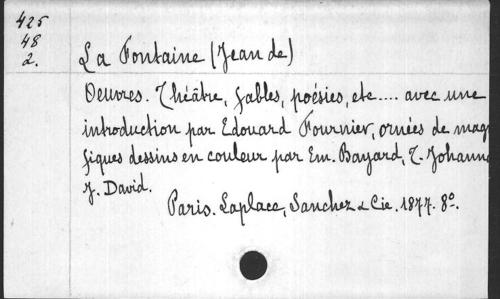 425
48
2.
La Fontaine (Jean de)
Oeuvres. Théâtre, fables, poésies, etc.... avec une
introduction par Edouard Fournier, ornées de mag
fiques dessins en couleur par Em. Bayard, T. Johann
J. David.
Paris. Laplace, Sanchez & Cie. 1877. 8º.